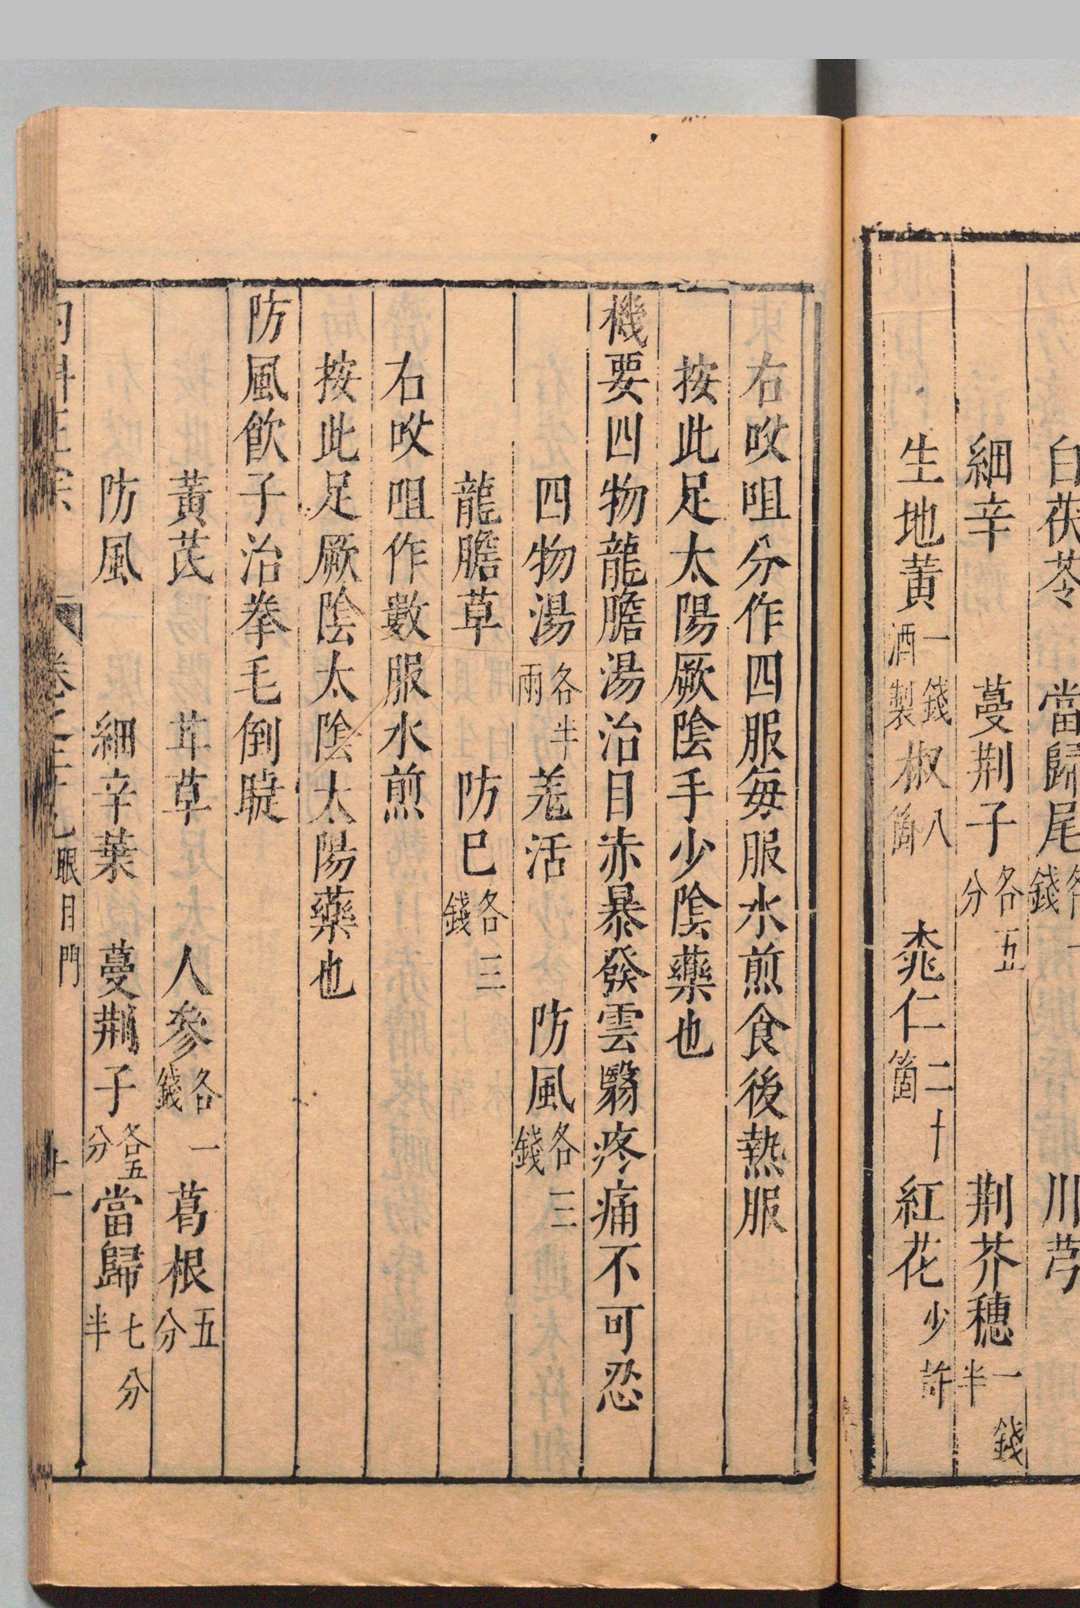 白茯苓　當歸尾各一錢　川芎
細辛　蔓荆子各五分　荆芥穗一錢半
生地黃一錢酒製　椒八箇　桃仁二十箇　紅花少許
右㕮咀分作四服每服水煎食後熱服
按此足太陽厥陰手少陰藥也
機要四物龍膽湯治目赤暴發雲翳疼痛不可忍
四物湯各半兩　羗活　防風各三錢
龍膽草　防巳各三錢
右㕮咀作數服水煎
按此足厥陰太陰太陽藥也
防風飲子治拳毛倒睫
黃芪　甘草　人參各一錢　葛根五分
防風　細辛葉　蔓荆子各五分　當歸七分半
卷之二十九眼目門